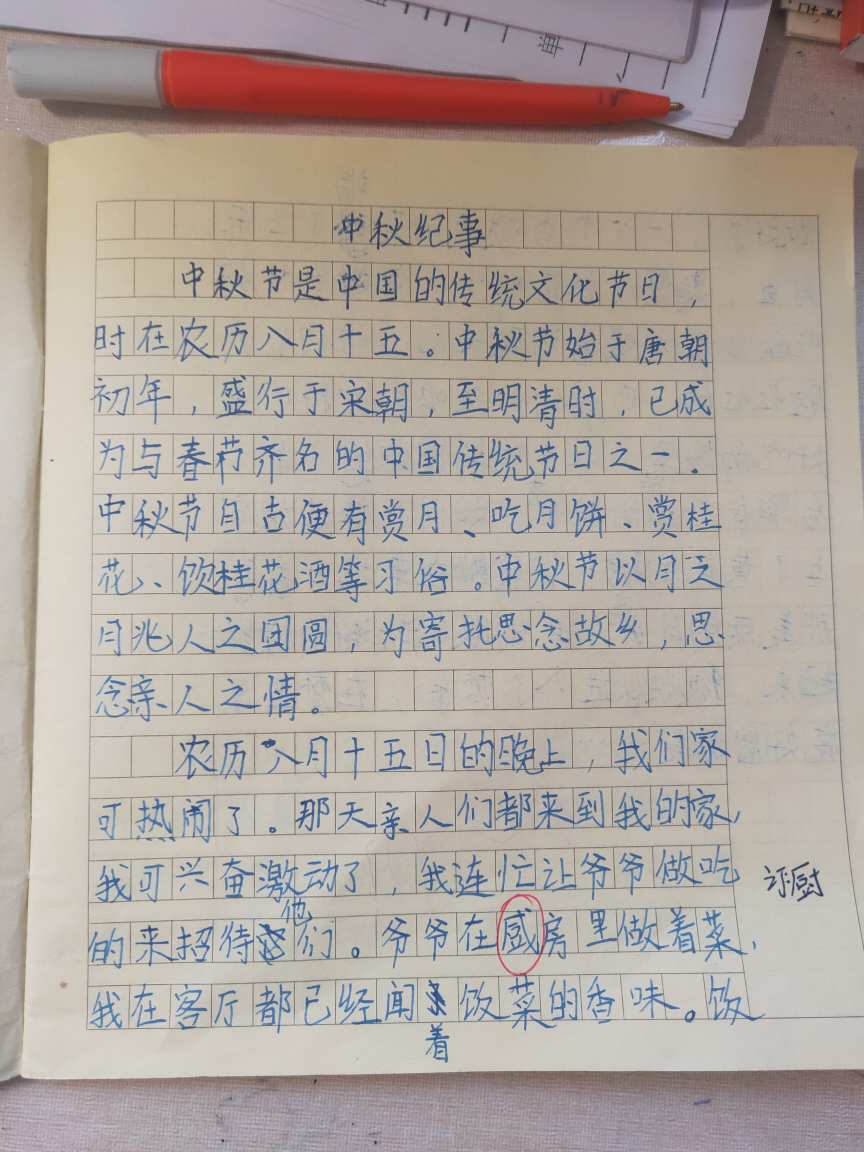 中秋纪事
中秋节是中国的传统文化节日，
时在农历八月十五。中秋节始于唐朝
初年，盛行于宋朝，至明清时，已成
为与春节齐名的中国传统节日之一．
中秋节自古便有赏月、吃月饼、赏桂
花、饮桂花酒等习俗。中秋节以月之
月兆人之团圆，为寄托思念故乡，思
念亲人之情。
农历八月十五日的晚上，我们家
可热闹了。那天亲人们都来到我的家，
我可兴奋激动了，我连忙让爷爷做吃
的来招待他们。爷爷在感房里做着菜，
订厨
我在客厅都已经闻着饭菜的香味。饭